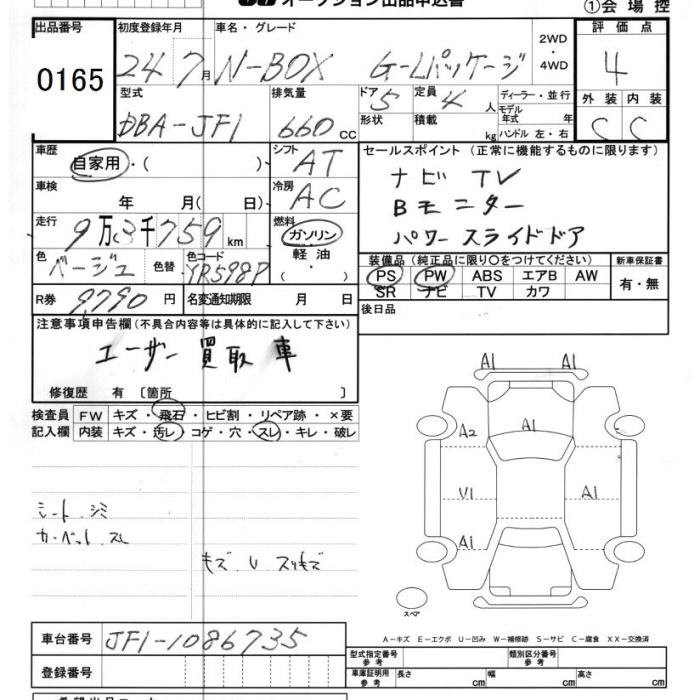 オークション出品申込書
①会場控
出品番号 0165
初度登録年月 24 7月
車名・グレード N-BOX G-Lパッケージ
2WD・4WD
評価点 4
外装 C 内装 C
型式 DBA-JF1
排気量 660 CC
ドア 5 形状
定員 4人 積載 kg
ディーラー・並行
モデル年式 年
ハンドル 左・右
車歴 自家用・( )
シフト AT
車検 年 月( 日)
冷房 AC
走行 9万3千759km
燃料 ガソリン・軽油・( )
色 ベージュ 色替 色コード YR598P
R券 9790円 名変通知期限 月 日
セールスポイント(正常に機能するものに限ります)
ナビ TV
Bモニター
パワースライドドア
装備品(純正品に限り○をつけてください)
新車保証書
PS PW ABS エアB AW
有・無
SR ナビ TV カワ
後日品
注意事項申告欄(不具合内容等は具体的に記入して下さい)
ユーザー買取車
修復歴 有〔箇所 〕
検査員記入欄
FW キズ・飛石・ヒビ割・リペア跡・×要
内装 キズ・汚レ・コゲ・穴・スレ・キレ・破レ
シート シミ
カーペット スレ
キズ U スリキズ
A1 A1
A2 A1
U1 A1
A1
スペア
A-キズ E-エクボ U-凹み W-補修跡 S-サビ C-腐食 XX-交換済
車台番号 JF1-1086735
登録番号
型式指定番号 参考
類別区分番号 参考
車庫証明用 参考 長さ cm 幅 cm 高さ cm